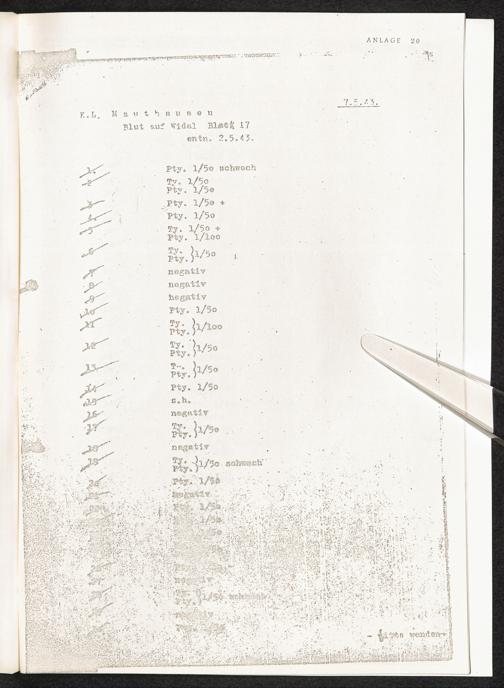 ANLAGE 20
7.5.43.
K.L. Mauthausen
Blut auf Widal Block 17
entn. 2.5.43.
1. Pty. 1/50 schwach
2. Ty. 1/50
Pty. 1/50
3. Pty. 1/50 +
4. Pty. 1/50
5. Ty. 1/50 +
Pty. 1/100
6. Ty.
Pty. } 1/50
7. negativ
8. negativ
9. negativ
10. Pty. 1/50
11. Ty.
Pty. } 1/100
12. Ty.
Pty. } 1/50
13. T.
Pty. } 1/50
14. Pty. 1/50
15. s.h.
16. negativ
17. Ty.
Pty. } 1/50
18. negativ
19. Ty.
Pty. } 1/50 schwach
Pty. 1/50
negativ
1/50
1/50
negativ
Pty. } 1/50
- bitte wenden-